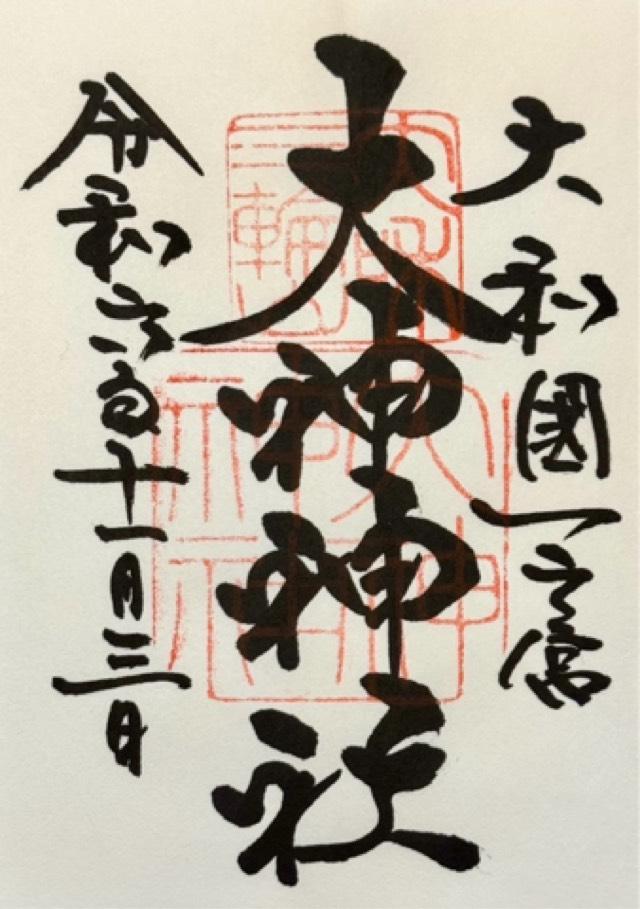 大和國一之宮
大神神社
令和六年十一月三日
三輪